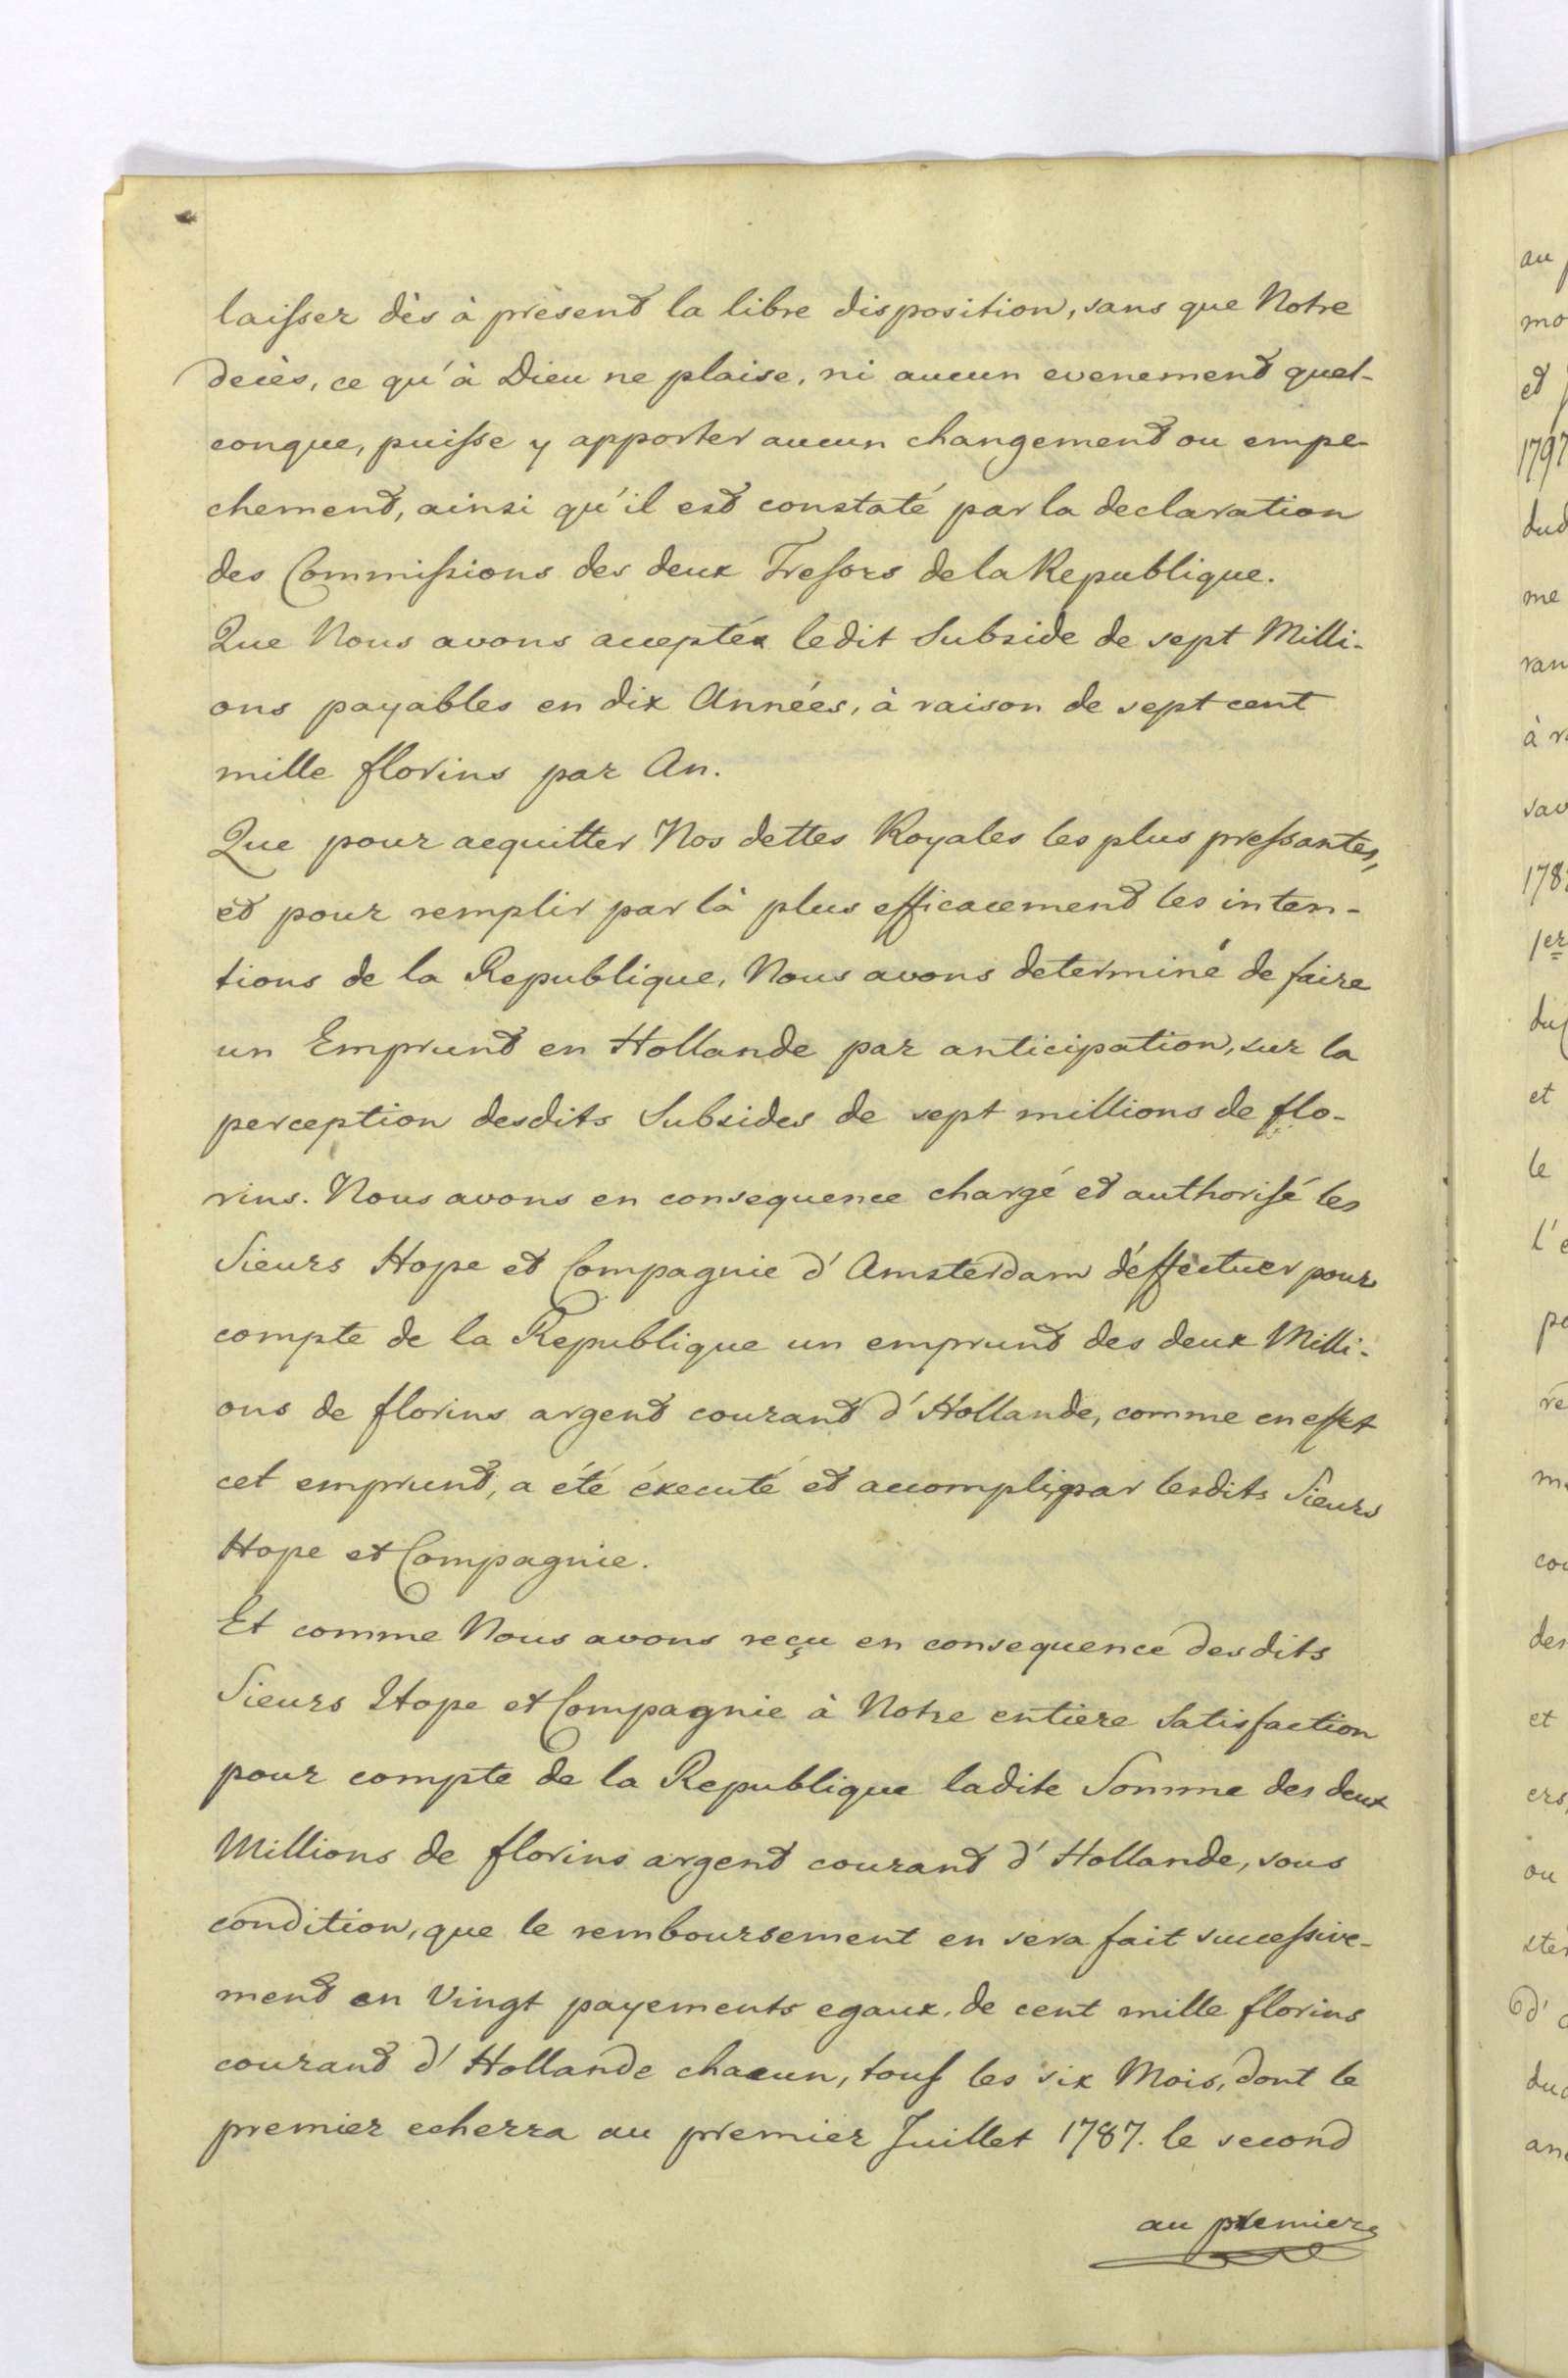 laisser dès à présent la libre disposition, sans que Notre
decès, ce qu'à Dieu ne plaise, ni aucun evenement quel-
conque, puisse y apporter aucun changement ou empe-
chement, ainsi qu'il est constaté par la declaration
des Commissions des deux Tresors de la Republique.
Que Nous avons acceptés ledit Subside de sept Milli-
ons payables en dix Années, à raison de sept cent
mille florins par An.
Que pour acquitter Nos dettes Royales les plus pressantes,
et pour remplir par là plus efficacement les inten-
tions de la Republique, Nous avons determiné de faire
un Emprunt en Hollande par anticipation, sur la
perception desdits Subsides de sept millions de flo-
rins. Nous avons en consequence chargé et authorisé les
Sieurs Hope et Compagnie d'Amsterdam d'éffectuer pour
compte de la Republique un emprunt des deux Milli-
ons de florins argent courant d'Hollande, comme en effet
cet emprunt, a été éxecuté et accompli par lesdits Sieurs
Hope et Compagnie.
Et comme Nous avons reçu en consequence desdits
Sieurs Hope et Compagnie à Notre entiere Satisfaction
pour compte de la Republique ladite Somme des deux
Millions de florins argent courant d'Hollande, sous
condition, que le remboursement en sera fait successive-
ment en Vingt payements egaux, de cent mille florins
courant d'Hollande chacun, tous les six Mois, dont le
premier echerra au premier Juillet 1787. le second
au premier
au
mo
et
1797
dud
me
ran
à
sav
178
1er
du
et
le
l'e
pe
re
m
cou
des
et
ers
ou
ster
d'
du
an